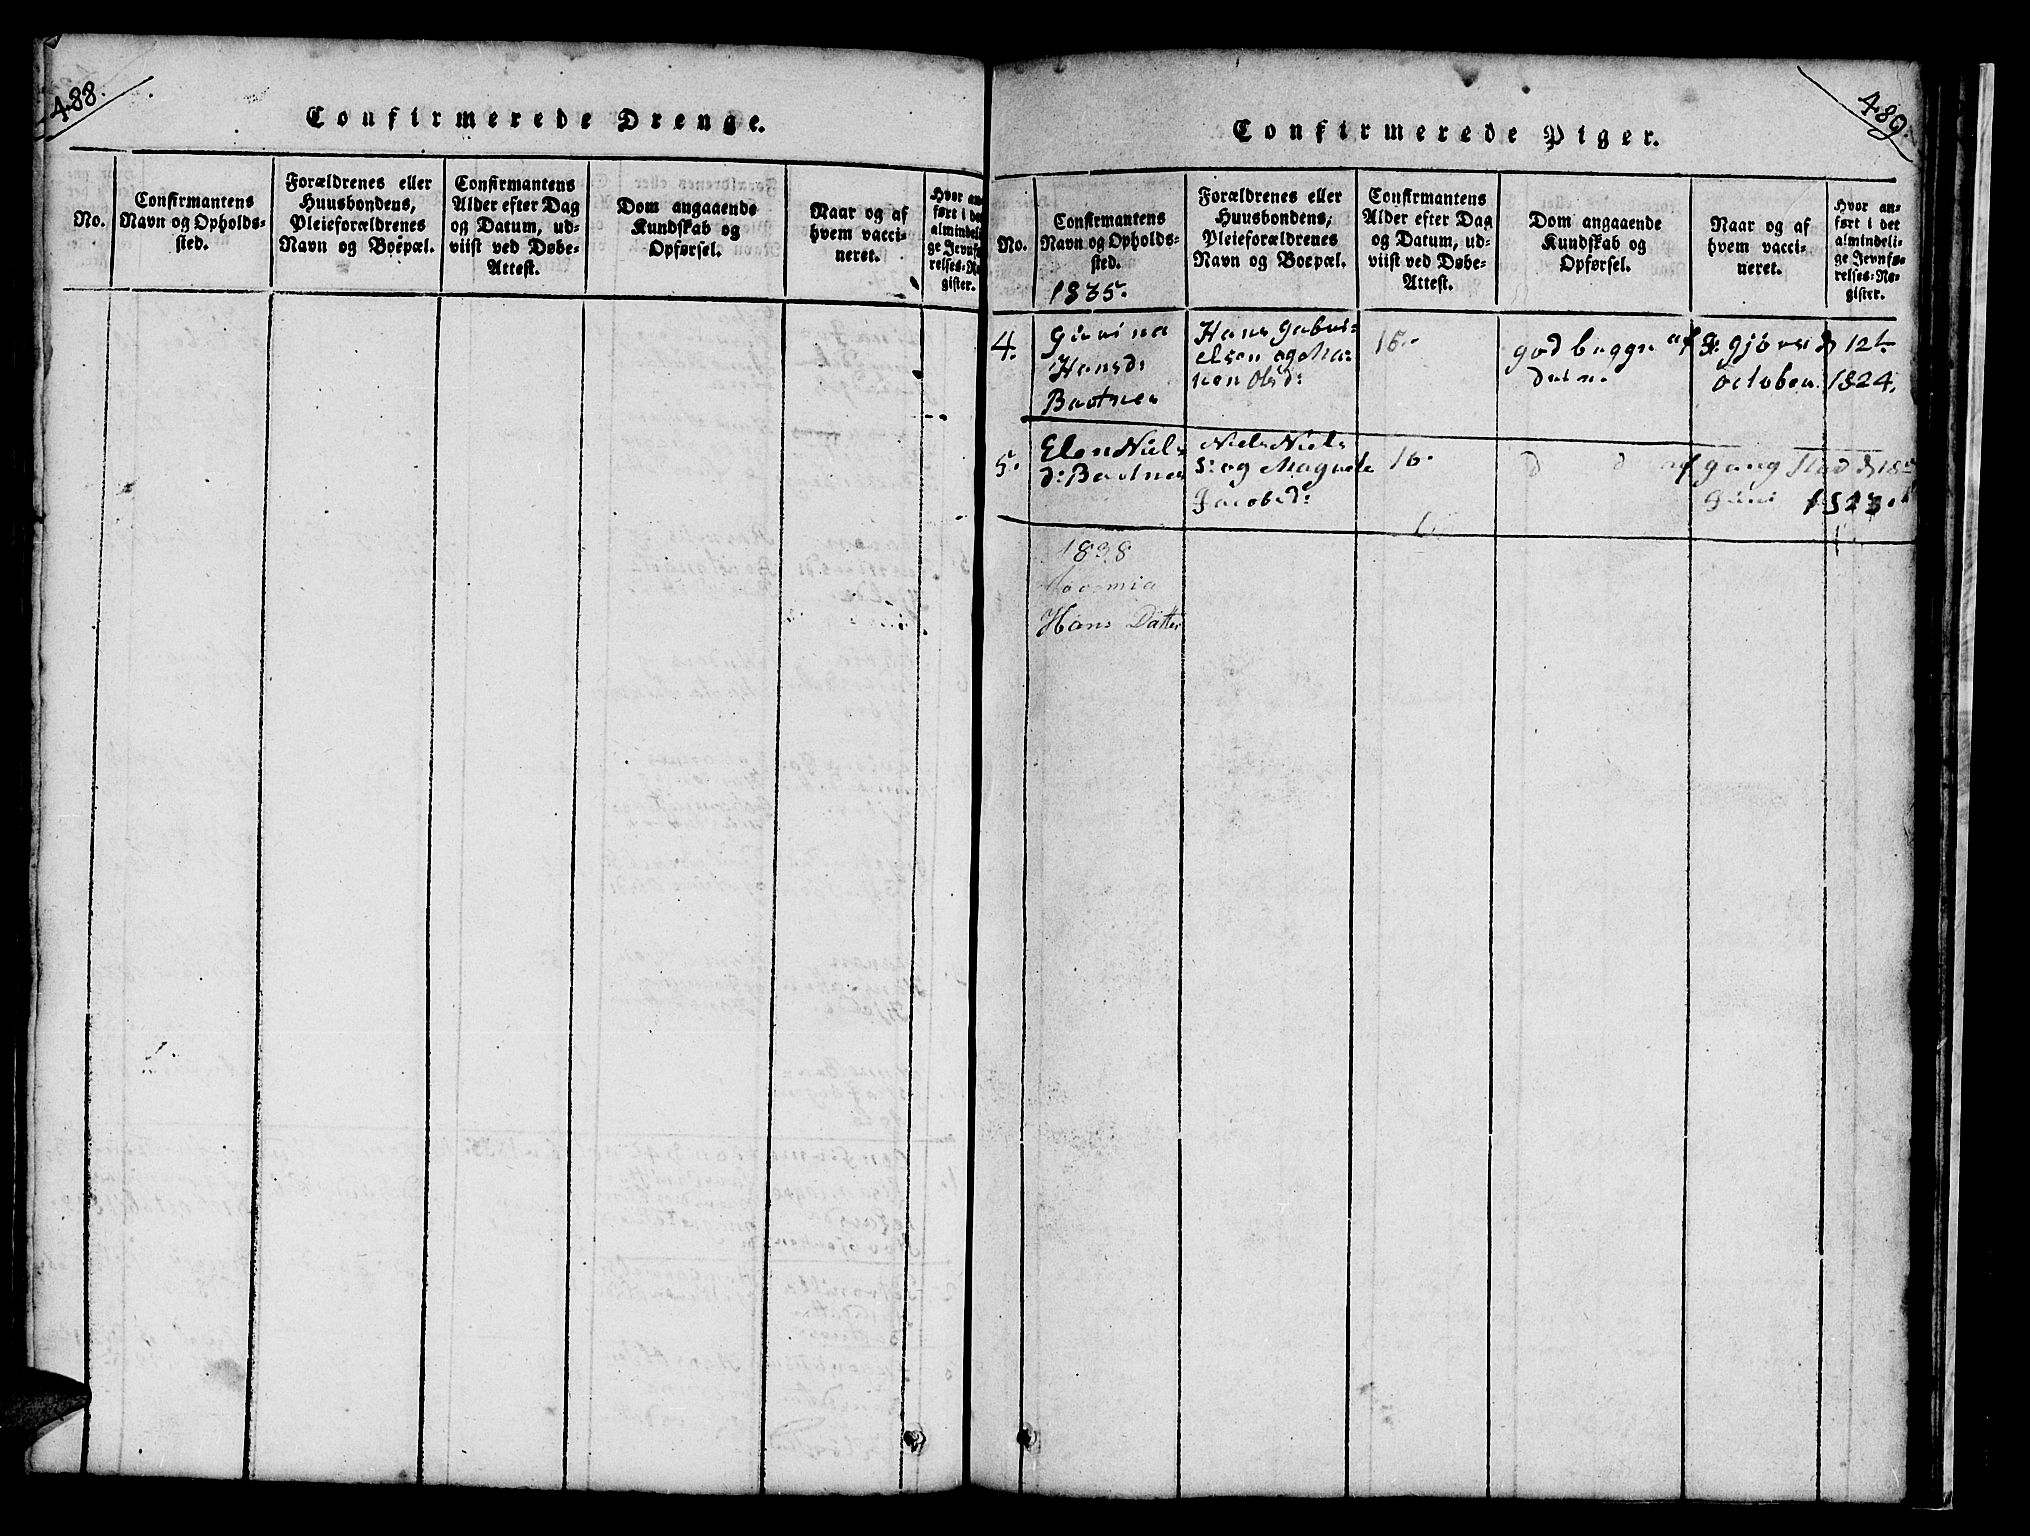 488.
Confirmerede Drenge.
No.
Confirmantens
Navn og Opholds-
sted.
Forældrenes eller
Huusbondens,
Pleieforældrenes
Navn og Boepæl.
Confirmantens
Alder efter Dag
og Datum, ud-
viist ved Døbe-
Attest.
Dom angaaende
Kundskab og
Opførsel.
Naar og af
hvem vacci-
neret.
Hvor an-
ført i det
almindeli-
ge Jevnfø-
relses-Re-
gister.
489.
Confirmerede Piger.
No.
Confirmantens
Navn og Opholds-
sted.
1835.
Forældrenes eller
Huusbondens,
Pleieforældrenes
Navn og Boepæl.
Confirmantens
Alder efter Dag
og Datum, ud-
viist ved Døbe-
Attest.
Dom angaaende
Kundskab og
Opførsel.
Naar og af
hvem vacci-
neret.
Hvor an-
ført i det
almindeli-
ge Jevnfø-
relses-Re-
gister.
4.
Hansd:
Baatnes
Hans Gabri=
elsen og Ma=
ren Olsd:
15.
god begge
dele.
af S: Gjöves d 12te
October 1824.
5.
Elen Niels
d: Baatnes
Niels Niels
S: og Magrete
Jacobsd:
16.
d d
af Gang Stad d 18
Juni 1823.
1838
Hans Datter